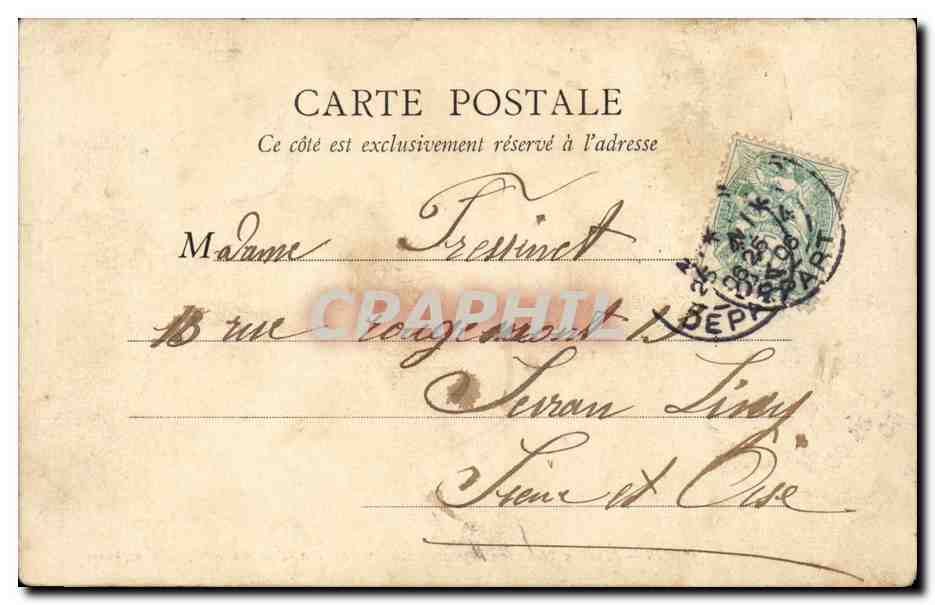 CARTE POSTALE
Ce côté est exclusivement réservé à l'adresse
Madame Fressinet
rue rougemont
Sevran Livry
Seine et Oise
DEPART
DEPART
CRAPHIL